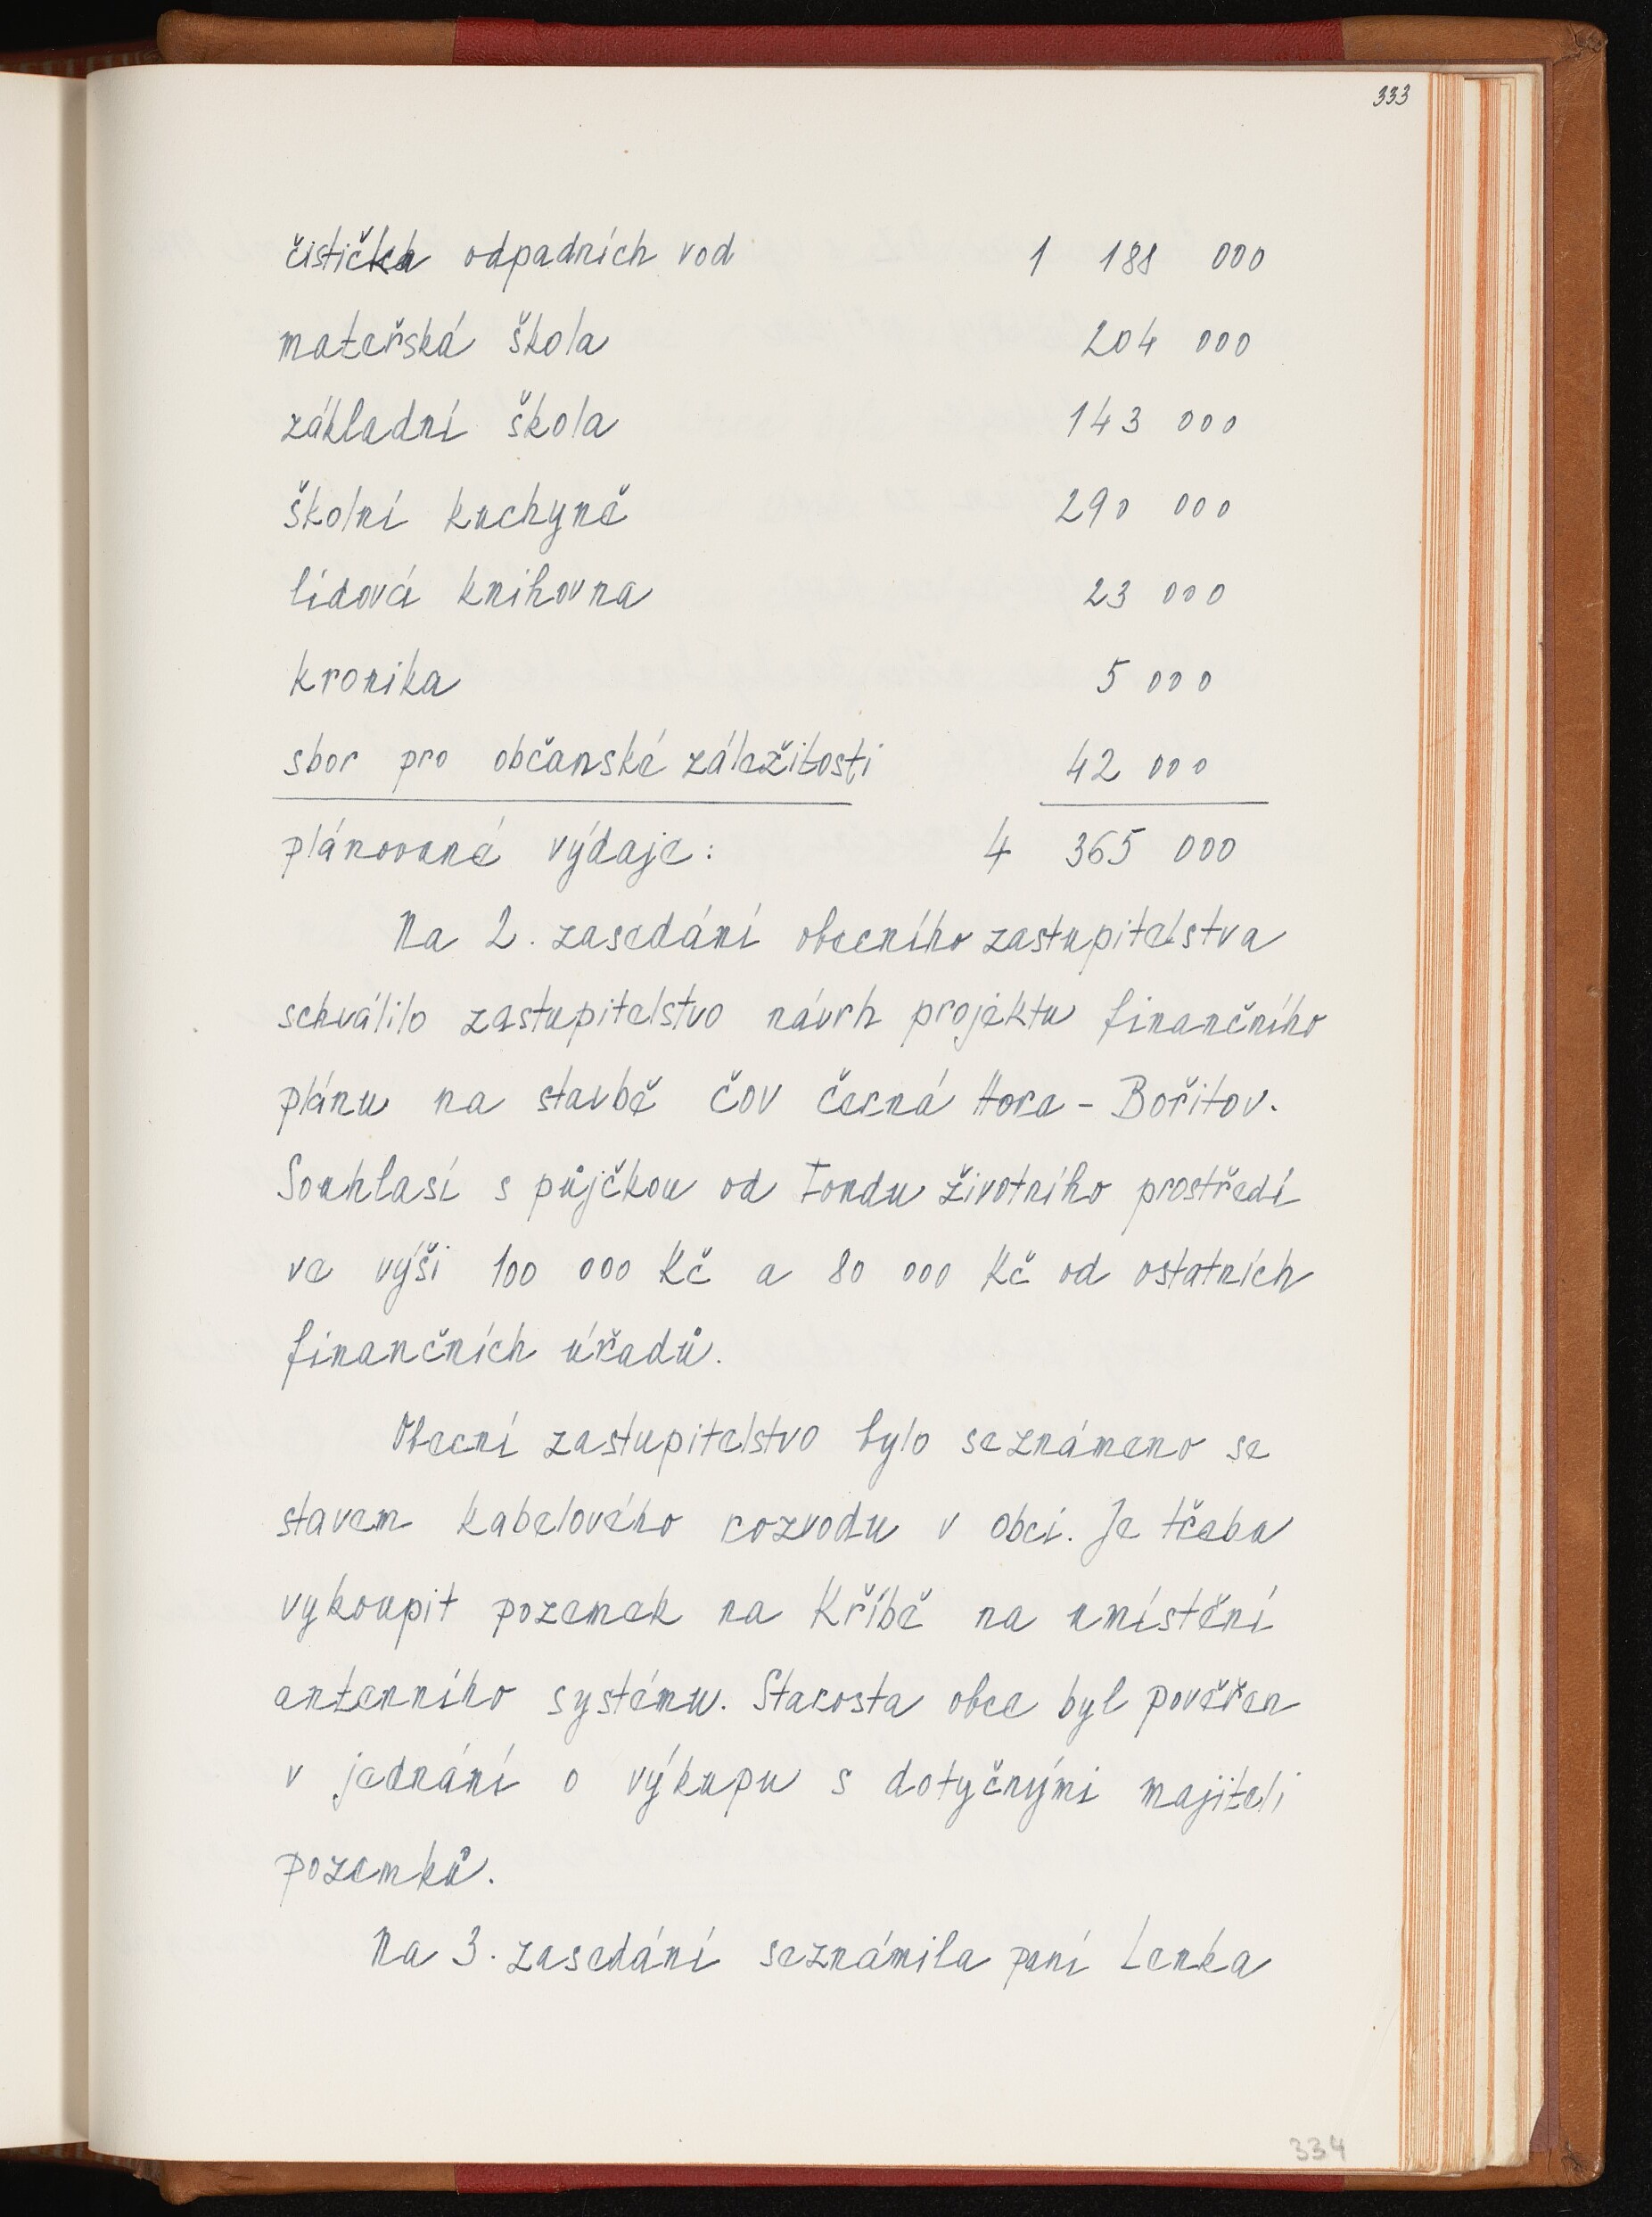 333
čistička odpadních vod 1 188 000
mateřská škola 204 000
základní škola 143 000
školní kuchyně 290 000
lidová knihovna 23 000
kronika 5 000
sbor pro občanské záležitosti 42 000
plánované výdaje: 4 365 000
Na 2. zasedání obecního zastupitelstva
schválilo zastupitelstvo návrh projektu finančního
plánu na stavbě čov černá Hora - Bořitov.
Souhlasí s půjčkou od Fondu životního prostředí
ve výši 100 000 Kč a 80 000 Kč od ostatních
finančních úřadů.
Obecní zastupitelstvo bylo seznámeno se
stavem kabelového rozvodu v obci. Je třeba
vykoupit pozemek na Křibě na umístění
anténního systému. Starosta obce byl pověřen
v jednání o výkupu s dotyčnými majiteli
pozemků.
Na 3. zasedání seznámila paní Lenka
334